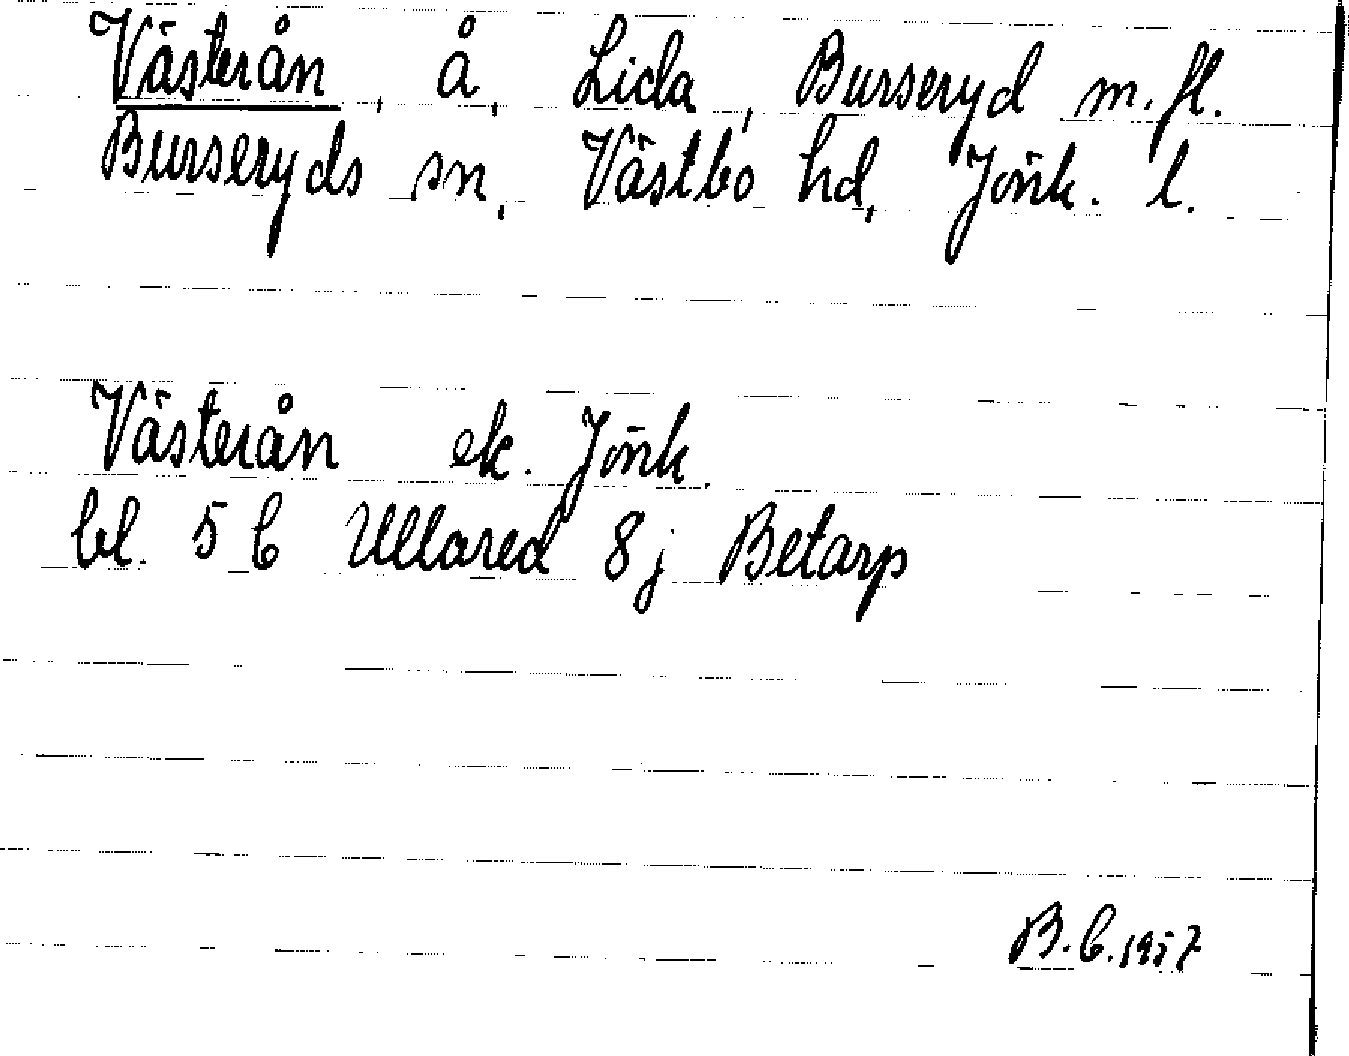 Västerån, å, Lida, Burseryd m.fl.
Burseryds sn, Västbo hd, Jönk. l.
Västerån ek. Jönk.
bl. 5 C Ullared 8 j Betarp
B.C. 1957